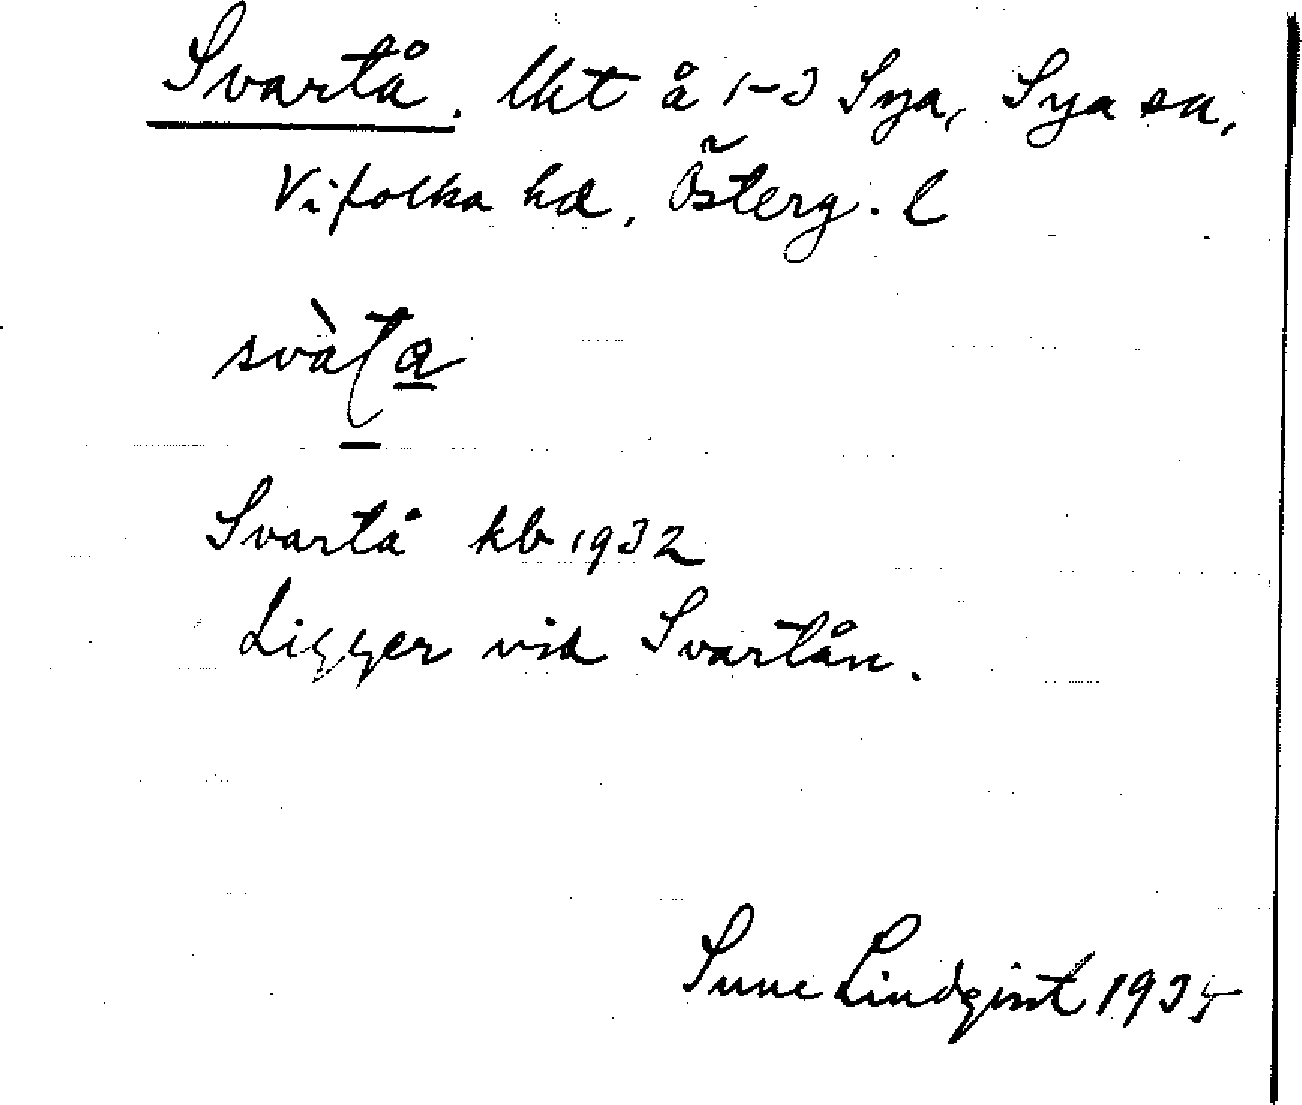 Svartå. Ukt å 1-3 Sya, Sya sn,
Vifolka hd, Österg. l
svàta
Svartå kb 1932
Ligger vid Svartån.
Sune Lindqvist 1935